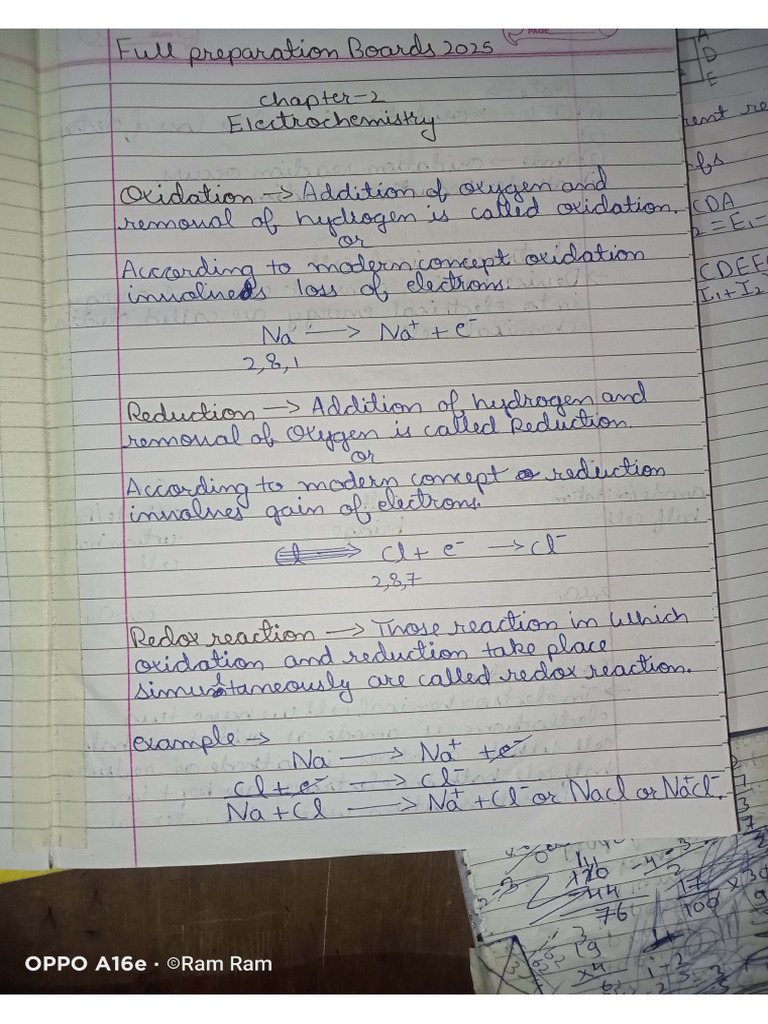 PAGE
Full preparation Boards 2025
chapter-2
Electrochemistry
Oxidation → Addition of oxygen and
removal of hydrogen is called oxidation.
or
According to modern concept oxidation
involves loss of electrons.
Na → Na⁺ + e⁻
2,8,1
Reduction → Addition of hydrogen and
removal of Oxygen is called Reduction.
or
According to modern concept reduction
involves gain of electrons.
Cl + e⁻ → Cl⁻
2,8,7
Redox reaction → Those reaction in which
oxidation and reduction take place
simultaneously are called redox reaction.
example →
Na → Na⁺ + e⁻
Cl + e⁻ → Cl⁻
Na + Cl → Na⁺ + Cl⁻ or Nacl or Na⁺cl⁻.
A
D
E
rent re
CDA
2 = E₁ -
CDEF
I₁ + I₂
120
-44
76
17
100
19
x4
OPPO A16e · ©Ram Ram